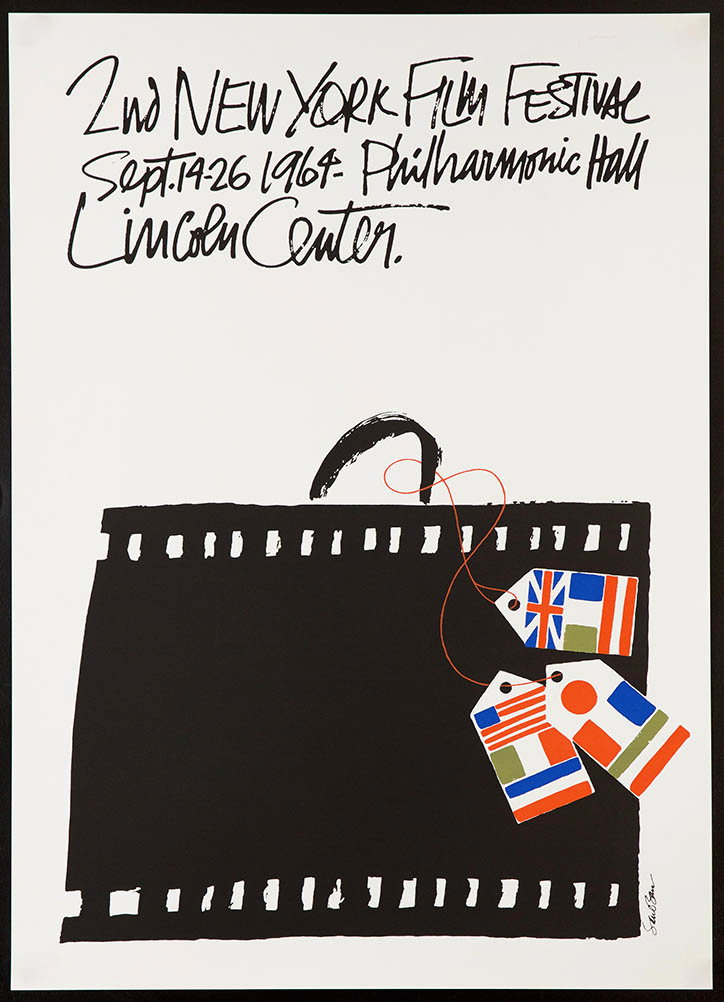 2nd NEW YORK FILM FESTIVAL
Sept. 14-26 1964 - Philharmonic Hall
Lincoln Center.
Saul Bass